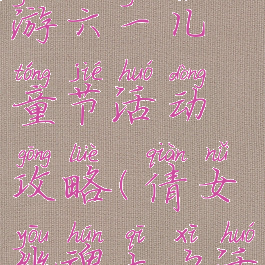 游六一儿
tóng jié huó dòng
童节活动
gōng lüè qiàn nǚ
攻略(倩女
yōu hún qī xī huó